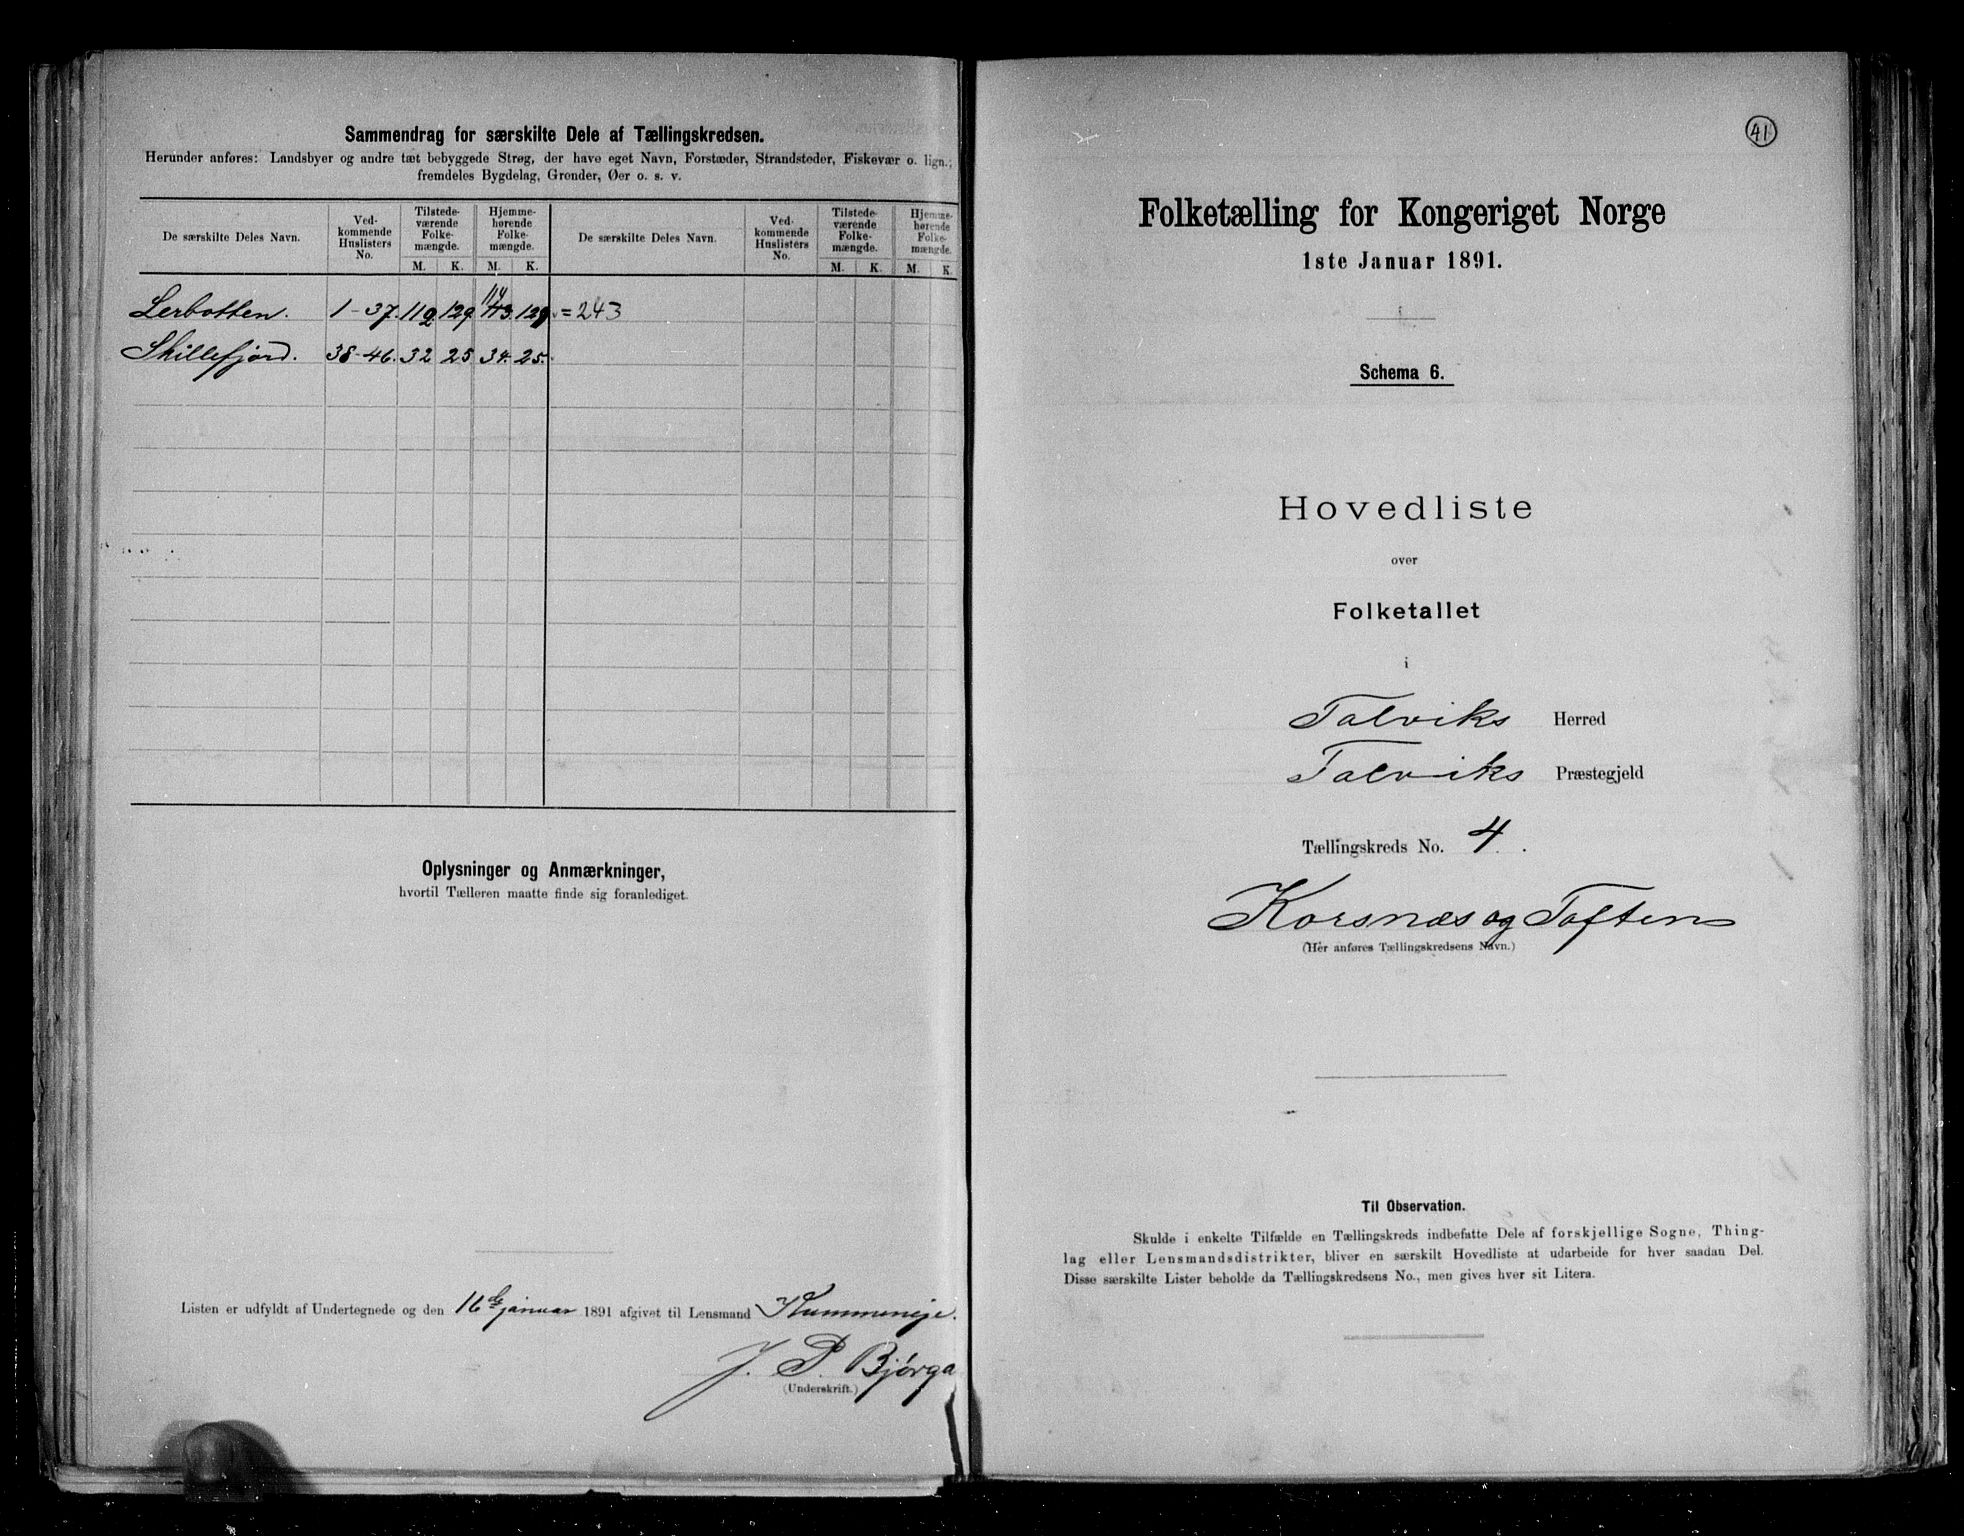 Sammendrag for særskilte Dele af Tællingskredsen.
Herunder anføres: Landsbyer og andre tæt bebyggede Strøg, der have eget Navn, Forstæder, Strandsteder, Fiskevær o. lign.;
fremdeles Bygdelag, Grender, Øer o. s. v.
De særskilte Deles Navn.
Ved-
kommende
Huslisters
No.
Tilstede-
værende
Folke-
mængde.
Hjemme-
hørende
Folke-
mængde.
M. K. M. K.
De særskilte Deles Navn.
Ved-
kommende
Huslisters
No.
Tilstede-
værende
Folke-
mængde.
Hjemme-
hørende
Folke-
mængde.
M. K. M. K.
114
Lerbotten. 1-37. 112 129 113. 129. = 243
Skillefjord. 38-46. 32 25 34. 25.
Oplysninger og Anmærkninger,
hvortil Tælleren maatte finde sig foranlediget.
Listen er udfyldt af Undertegnede og den 16de januar 1891 afgivet til Lensmand Kummeneje.
J. P. Bjørga
(Underskrift.)
41
Folketælling for Kongeriget Norge
1ste Januar 1891.
Schema 6.
Hovedliste
over
Folketallet
i
Talviks Herred
Talviks Præstegjeld
Tællingskreds No. 4.
Korsnæs og Toften
(Her anføres Tællingskredsens Navn.)
Til Observation.
Skulde i enkelte Tilfælde en Tællingskreds indbefatte Dele af forskjellige Sogne, Thing-
lag eller Lensmandsdistrikter, bliver en særskilt Hovedliste at udarbeide for hver saadan Del.
Disse særskilte Lister beholde da Tællingskredsens No., men gives hver sit Litera.